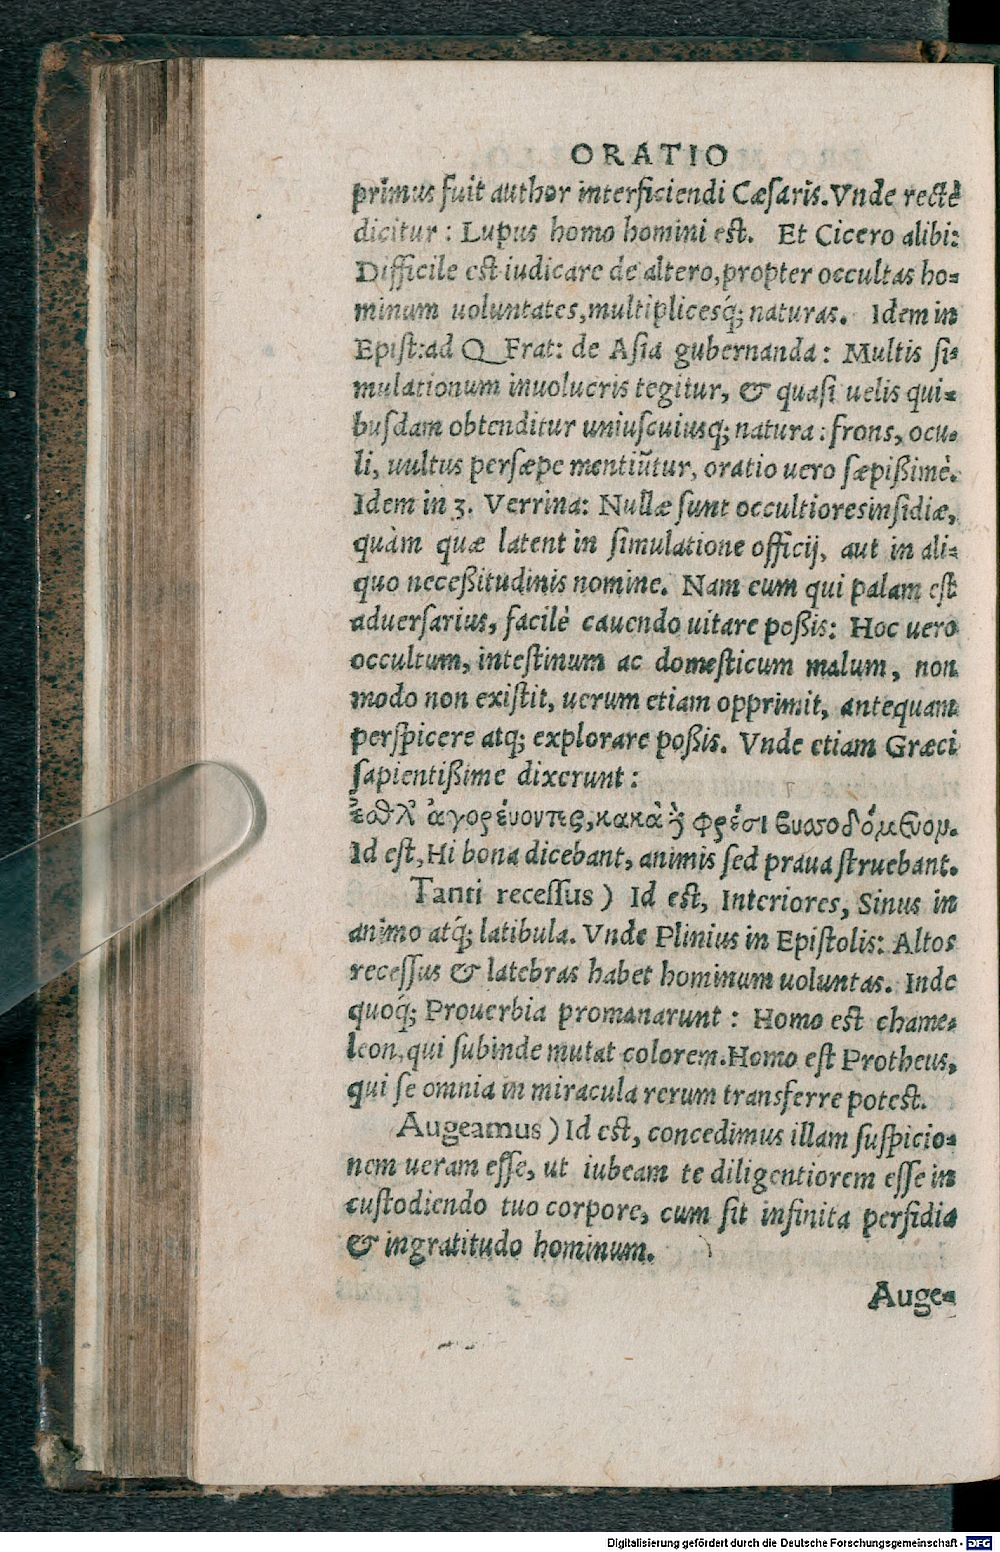 ORATIO
primus fuit author interficiendi Cæſaris. Vnde rectè
dicitur: Lupus homo homini eſt. Et Cicero alibi:
Difficile eſt iudicare de altero, propter occultas ho-
minum uoluntates, multiplicesq́; naturas. Idem in
Epiſt: ad Q Frat: de Aſia gubernanda: Multis ſi-
mulationum inuolucris tegitur, & quaſi uelis qui-
buſdam obtenditur uniuſcuiusq́; natura: frons, ocu-
li, uultus perſæpe mentiūtur, oratio uero ſæpißimè.
Idem in 3. Verrina: Nullæ ſunt occultiores inſidiæ,
quàm quæ latent in ſimulatione officij, aut in ali-
quo neceßitudinis nomine. Nam eum qui palam eſt
aduerſarius, facilè cauendo uitare poßis: Hoc uero
occultum, inteſtinum ac domeſticum malum, non
modo non exiſtit, uerum etiam opprimit, antequam
perſpicere atq; explorare poßis. Vnde etiam Græci
ſapientißime dixerunt:
ἐσθλ' ἀγορέυοντες, κακὰ ἢ φρέσι
Id eſt, Hi bona dicebant, animis ſed praua ſtruebant.
Tanti receſſus) Id eſt, Interiores, Sinus in
animo atq́; latibula. Vnde Plinius in Epiſtolis: Altos
receſſus & latebras habet hominum uoluntas. Inde
quoq́; Prouerbia promanarunt: Homo eſt chame-
leon, qui ſubinde mutat colorem. Homo eſt Protheus,
qui ſe omnia in miracula rerum transferre poteſt.
Augeamus) Id eſt, concedimus illam ſuſpicio-
nem ueram eſſe, ut iubeam te diligentiorem eſſe in
cuſtodiendo tuo corpore, cum ſit infinita perfidia
& ingratitudo hominum.
Auge-
Digitalisierung gefördert durch die Deutsche Forschungsgemeinschaft - DFG